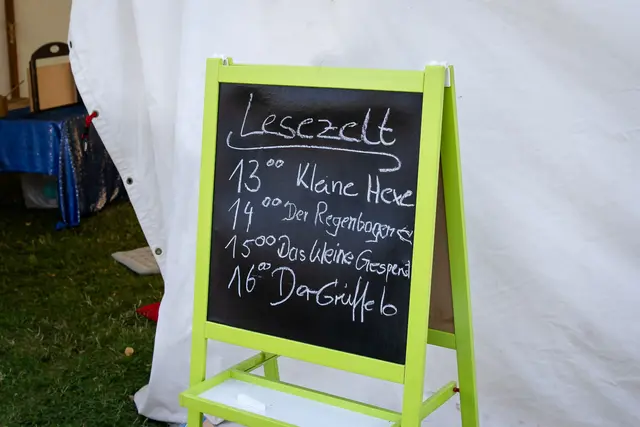 Lesezelt
13⁰⁰ Kleine Hexe
14⁰⁰ Der Regenbogen
15⁰⁰ Das kleine Gespenst
16⁰⁰ Der Grüffelo